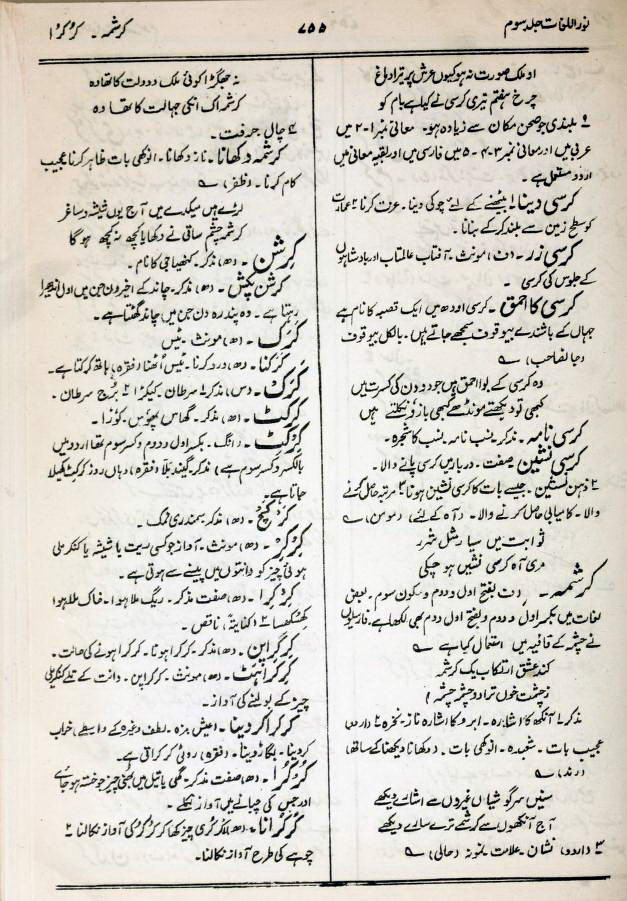 نور اللغات جلد سوم
۷۵۵
کرشمہ ۔ کرکرا
او ملک صورت نہ ہو کیوں عرش پر تیرا دماغ
چرخ ہفتم تیری کرسی لے کیا ہے بام کو
بلندی جو صحن مکان سے زیادہ ہو۔ معانی نمبر ۱-۲ میں
عربی میں اور معانی نمبر ۳-۴-۵ میں فارسی میں اور بقیہ معانی میں
اردو مستعمل ہے۔
کرسی دینا۔ بیٹھنے کے لئے چوکی دینا۔ عزت کرنا ۲ عمارت
کو سطح زمین سے بلند کر کے بنانا۔
کرسی زر۔ (ف) مونث۔ آفتاب عالمتاب اور بادشاہوں
کے جلوس کی کرسی۔
کرسی کا احمق۔ کرسی اودھ میں ایک قصبہ کا نام ہے
جہاں کے باشندے بیوقوف سمجھے جاتے ہیں۔ بالکل بیوقوف
(جانصاحب) ے
وہ کرسی کے بوا احمق ہیں جو دو دن کی کسرت میں
کبھی تو دیکھتے مونڈھے کبھی بازو نکلتے ہیں
کرسی نامہ۔ مذکر۔ نسب نامہ۔ نسب کا شجرہ۔
کرسی نشین۔ صفت۔ دربار میں کرسی پانے والا۔
۲ ذہن نشین۔ جیسے بات کا کرسی نشین ہونا ۳ مرتبہ حاصل کرنے
والا۔ کامیابی حاصل کرنے والا۔ (آہ کے لئے) (مومن) ے
ثوابت ہیں سیار مثل شرر
مری آہ کرسی نشیں ہو چکی
کرشمہ۔ (ف بفتح اول و دوم و سکون سوم۔ بعض
لغات میں بکسر اول و دوم و بفتح اول دوم بھی لکھا ہے۔ فارسیوں
نے چشمہ کے قافیہ میں استعمال کیا ہے ے
کند عشق ارتکاب یک کرشمہ
زچشمت خوں تراود چشمہ چشمہ)
مذکر۔ آنکھ کا اشارہ۔ ابرو کا اشارہ ناز۔ نخرہ ۲ (اردو)
عجیب بات۔ شعبدہ۔ انوکھی بات۔ (دکھانا دیکھنا کے ساتھ)
(رند) ے
سنیں سرگوشیاں غیروں سے اشارے دیکھے
آج آنکھوں سے کرشمے ترے سارے دیکھے
۳ (اردو) نشان۔ علامت۔ نمونہ (حالی) ے
نہ جھگڑا کوئی ملک و دولت کا تھا وہ
کرشمہ اک انکی جہالت کا تھا وہ
۴ چال حرفت۔
کرشمہ دکھانا۔ ناز دکھانا۔ انوکھی بات ظاہر کرنا عجیب
کام کرنا۔ (ظفر) ے
لڑے ہیں میکدے میں آج یوں شیشہ و ساغر
کرشمہ چشم ساقی نے دکھایا کچھ نہ کچھ ہو گا
کرشن۔ (ھ) مذکر۔ کنھیا جی کا نام۔
کرشن پکش۔ (ھ) مذکر۔ چاند کے اخیر دن جن میں اول اندھیرا
رہتا ہے۔ وہ پندرہ دن جن میں چاند گھٹتا ہے۔
کرک۔ (ھ) مونث۔ ٹیس
کرکنا۔ (ھ) درد کرنا۔ ٹیس اُٹھنا (فقرہ) ہاتھ کرکتا ہے۔
کرک۔ (س) مذکر ۱ سرطان۔ کیکڑا ۲ بُرج سرطان۔
کرکٹ۔ (ھ) مذکر۔ گھاس پھوس۔ کوڑا۔
کرکٹ۔ (انگ۔ بکسر اول و دوم و کسر سوم تھا اردو میں
بالکسر و کسر سوم ہے) مذکر۔ گیند بلا (فقرہ) وہاں روز کرکٹ کھیلا
جاتا ہے۔
کرکچ۔ (ھ) مذکر۔ سمندری نمک۔
کرکر۔ (ھ) مونث۔ آواز جو کسی ریت یا شیشہ یا کنکر ملی
ہوئی چیز کو دانتوں میں پیسنے سے ہوتی ہے۔
کرکرا۔ (ھ) صفت مذکر۔ ریگ ملا ہوا۔ خاک ملا ہوا
کھسکھسا ۲ (کنایۃً) ناقص۔
کرکراپن۔ (ھ) مذکر۔ کرکرا ہونا۔ کرکرا ہونے کی حالت۔
کرکراہٹ۔ (ھ) مونث۔ کرکراپن۔ دانت کے تلے کنکریلی
چیز کے بولنے کی آواز۔
کرکرا کر دینا۔ (عیش مزہ۔ لطف وغیرہ کے واسطے) خراب
کر دینا۔ بگاڑ دینا۔ (فقرہ) روٹی کرکراتی ہے۔
کرکرا۔ (ھ) صفت مذکر۔ گھی یا تیل میں بھنی چیز جو خستہ ہو جائے
اور جس کی چبانے میں آواز نکلے۔
کرکرانا۔ (ھ) کری چیز کھا کر کُر کُر کی آواز نکالنا ۲
چوہے کی طرح آواز نکالنا۔